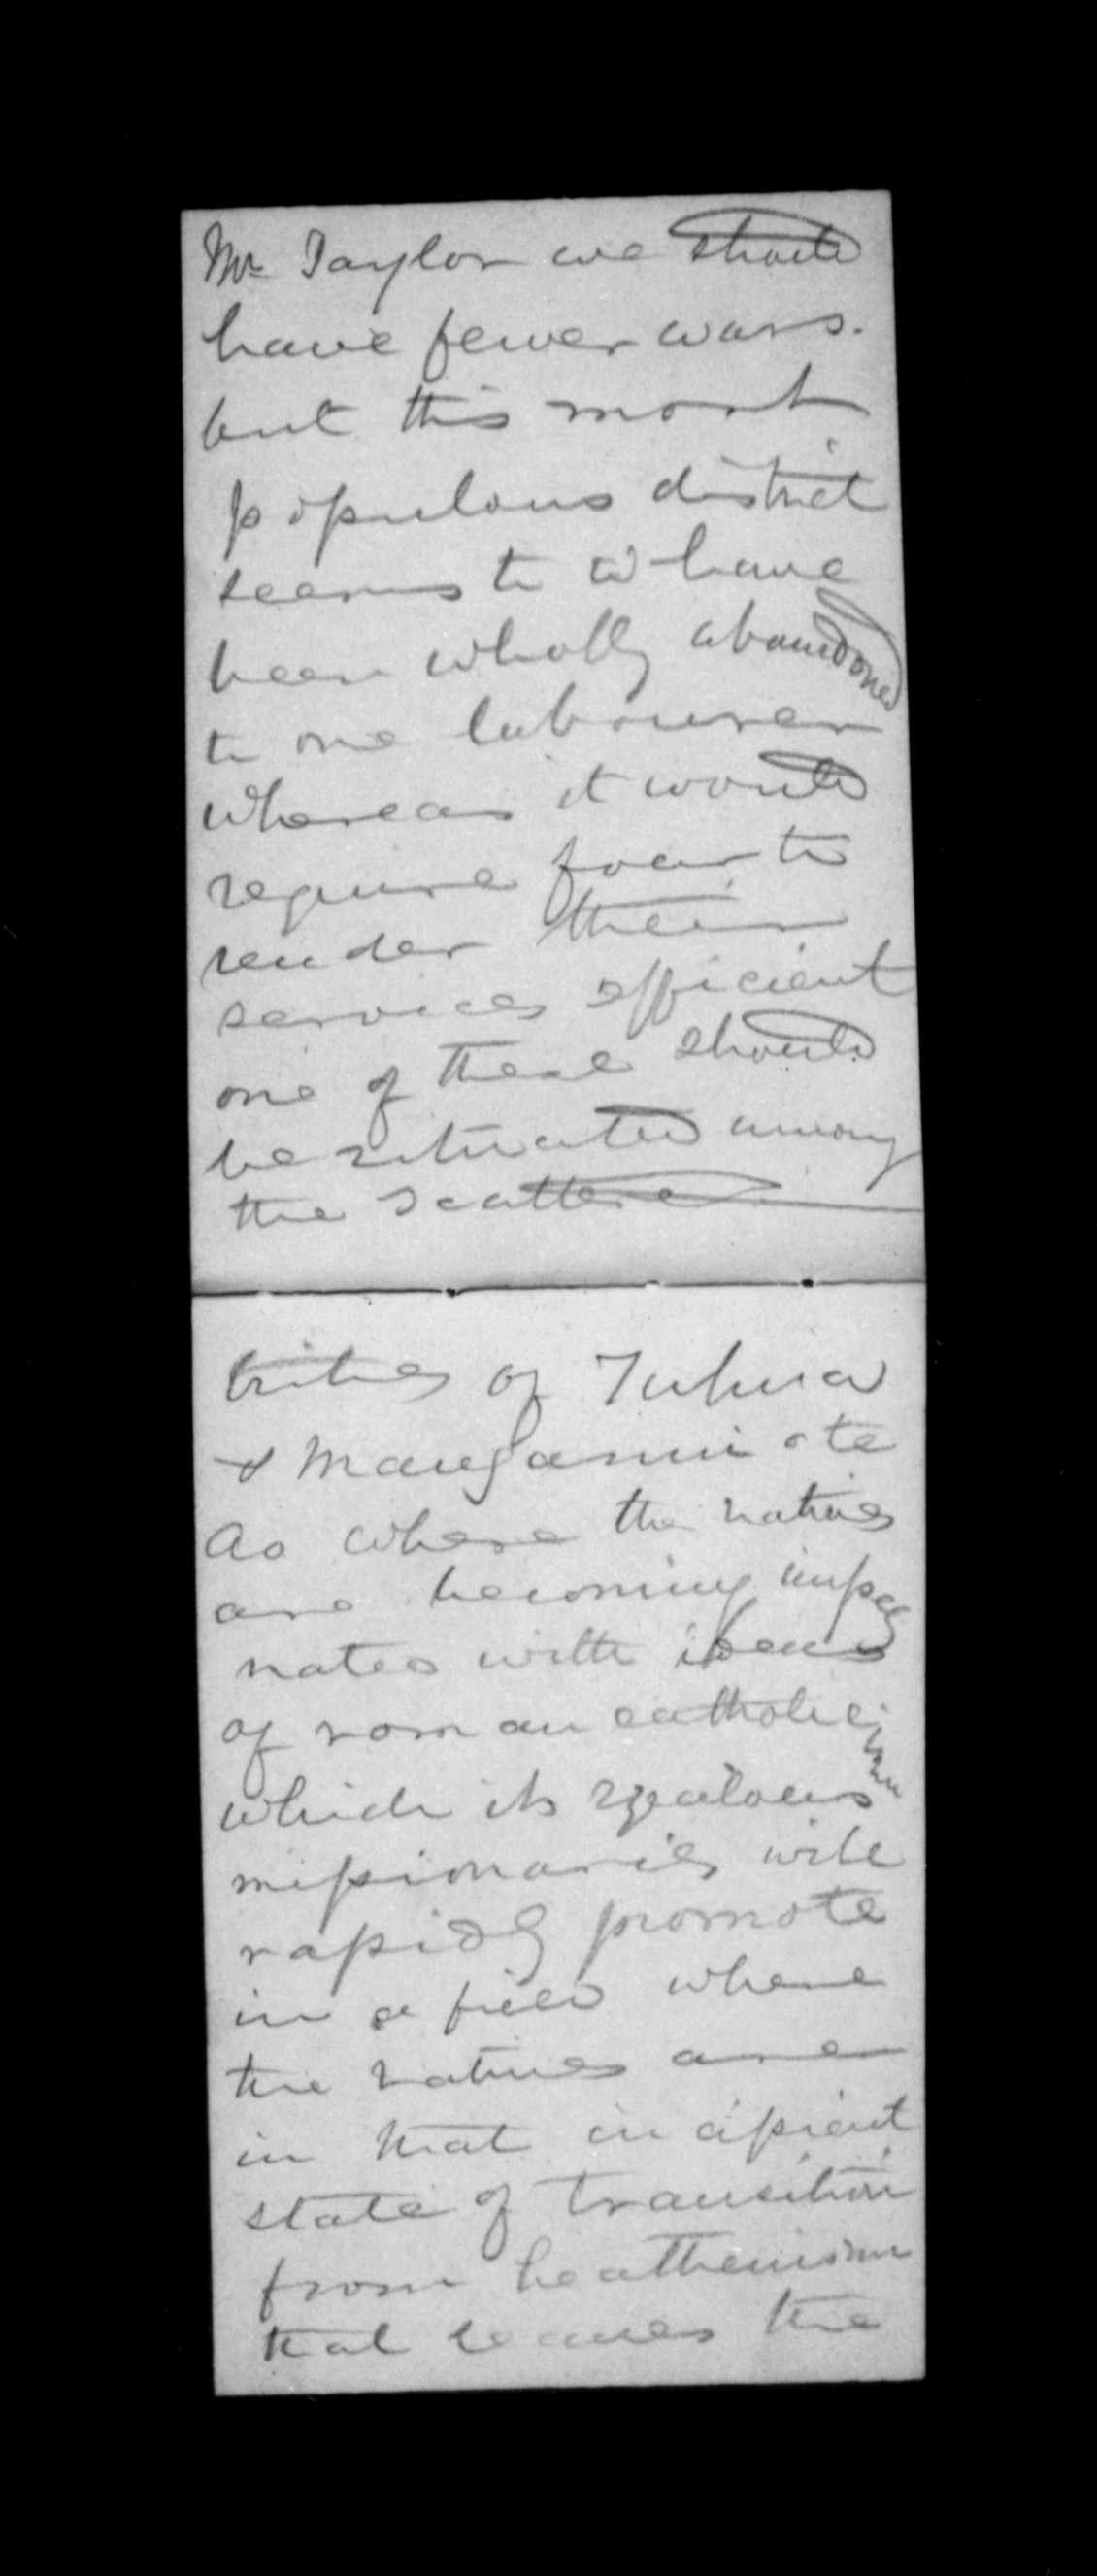 Mr Taylor we should
have fewer wars.
but this most
populous district
seems to to have
been wholly abandoned
to one labourer
whereas it would
require four to
render their
services efficient
one of these should
be situated among
the scattered
tribes of Tuhua
&
as where the natives
are becoming impreg
nated with ideas
of roman catholicism
which its zealous
missionaries will
rapidly promote
in a field where
the natives are
in that incipient
state of transition
from heathenism
that leaves the